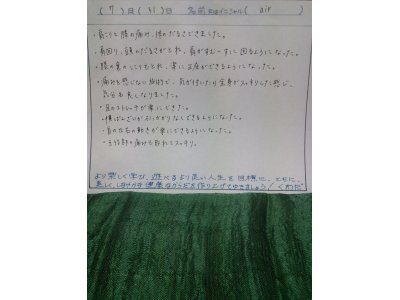 (7)月(31)日 名前又はイニシャル( air )
・肩こりと腰の痛み、体のだるさできました。
・首回り、頭のだるさがとれ、肩がすむーずに回るようになった。
・腰の裏のこりもとれ、楽に正座ができるようになった。
・痛みを感じない施術で、気が付いたら全身がスッキリした感じ、
気分も良くなりました。
・足のストレッチが楽にできた。
・横ばんざいがひっかかりなくできるようになった。
・首の左右の動きが楽にできるようになった。
・の痛みも取れてスッキリ。
より楽しく学び、遊べるより良い人生を目標に、ともに、
美しく、しなやかな健康なからだを作り上げてゆきましょう!